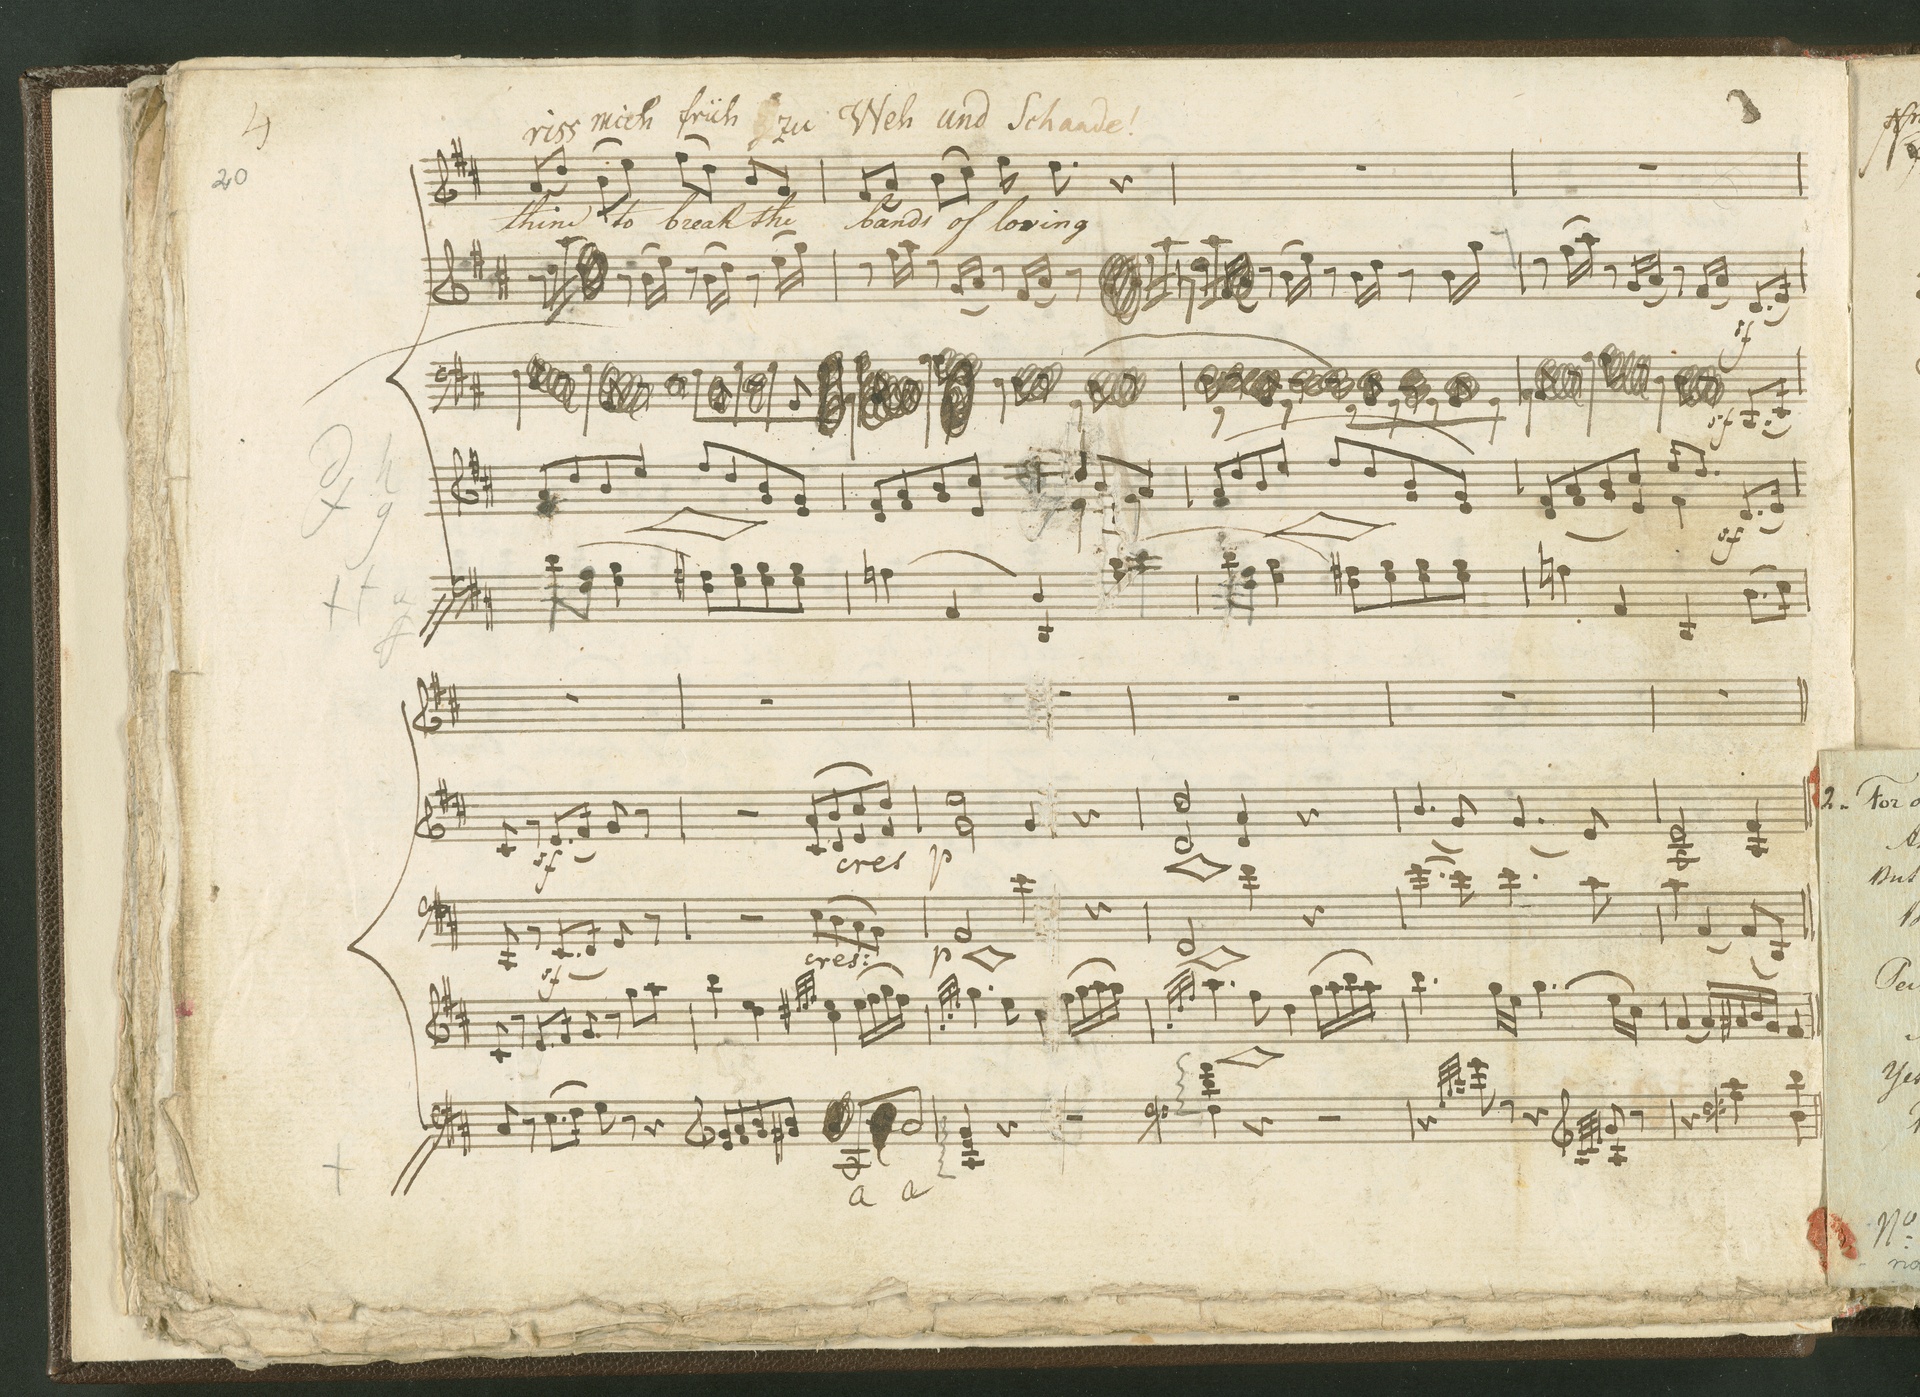 4
20
riss mich früh zu Weh und Schande!
thine to break the bands of loving
sf
sf
sf
d h
g
sf cres p
sf cres: p
a a
2. For
But
Yes
No